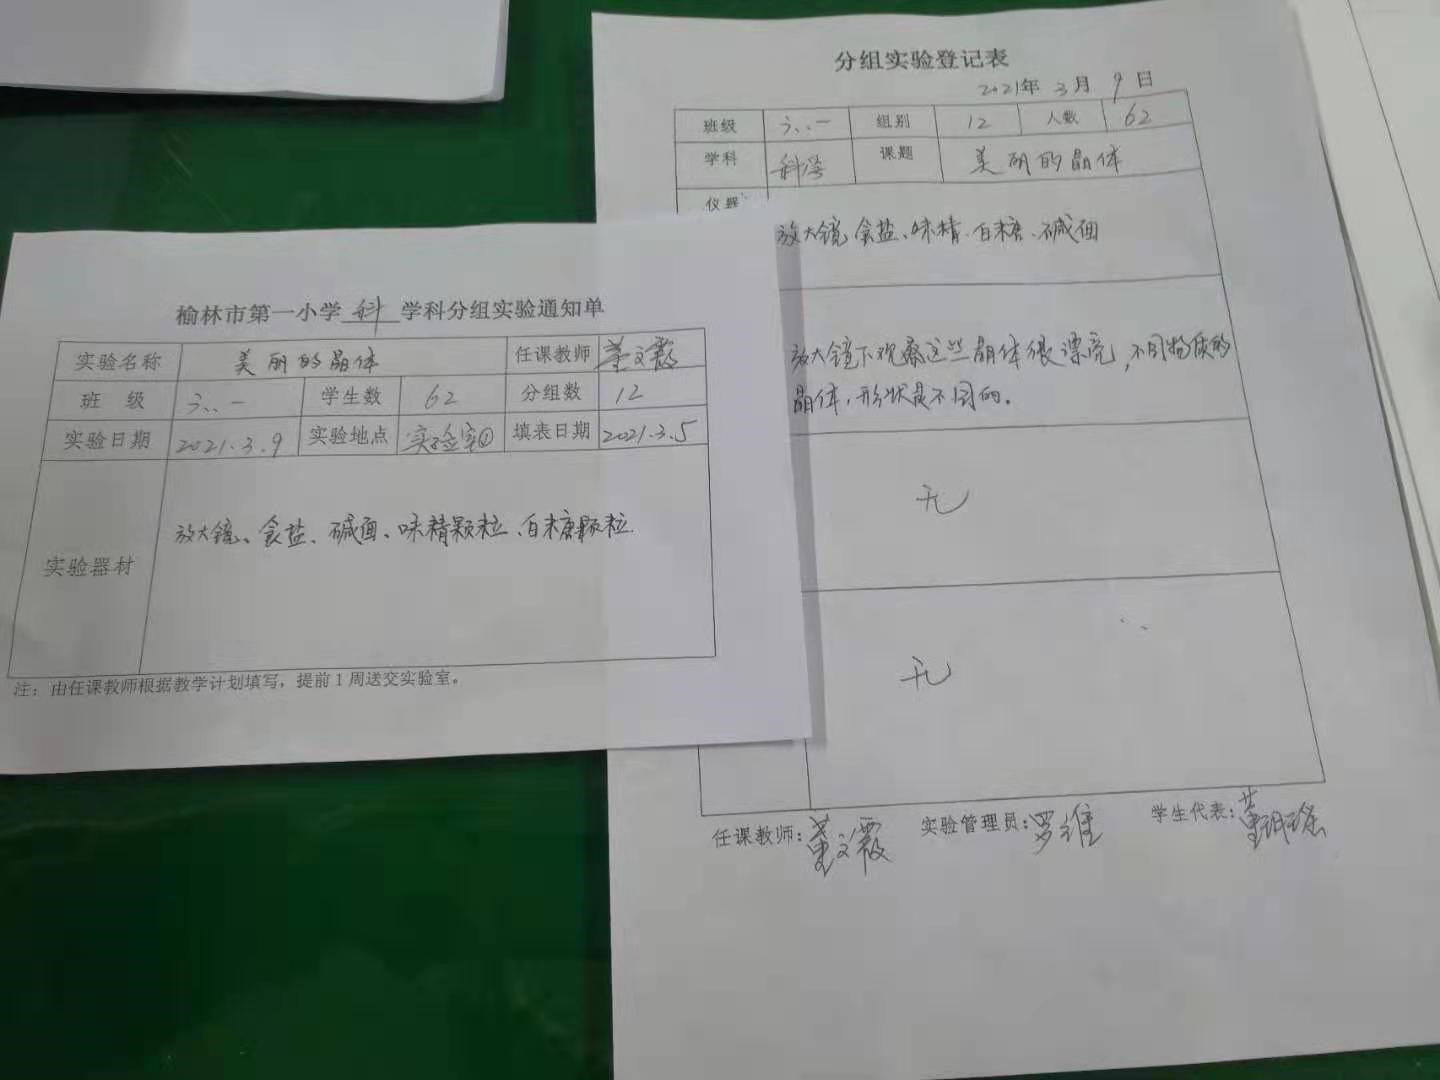 分组实验登记表
2021年 3月 9日
班级 六.一 组别 12 人数 62
学科 科学 课题 美丽的晶体
仪器
放大镜、食盐、味精、白糖、碱面
放大镜下观察这些晶体很漂亮，不同物质的
晶体，形状是不同的。
无
无
任课教师：董文霞 实验管理员：罗维 学生代表：董
榆林市第一小学 科 学科分组实验通知单
实验名称 美丽的晶体 任课教师 董文霞
班 级 六.一 学生数 62 分组数 12
实验日期 2021.3.9 实验地点 实验室① 填表日期 2021.3.5
实验器材 放大镜、食盐、碱面、味精颗粒、白糖颗粒
注：由任课教师根据教学计划填写，提前1周送交实验室。